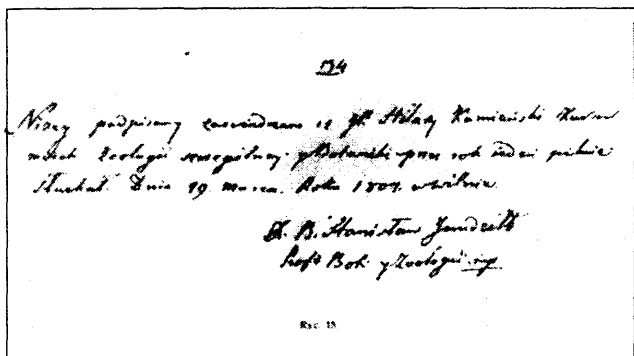 134
Niżey podpisany zaswiadczam iż JP. Hilary Kamieński Kursu
Zoologii szczególney y Botaniki przez rok ieden pilnie
słuchał. Dnia 19 marca. Roku 1804. w Wilnie
X. B. Stanisław Jundziłł
Prof: Bot: y Zoologii mp
Ryc. 15.